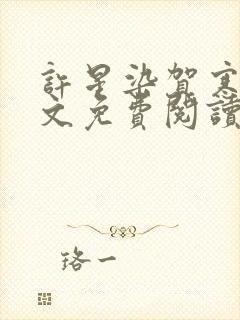 許星染賀寒
文免費閱讀
珞一